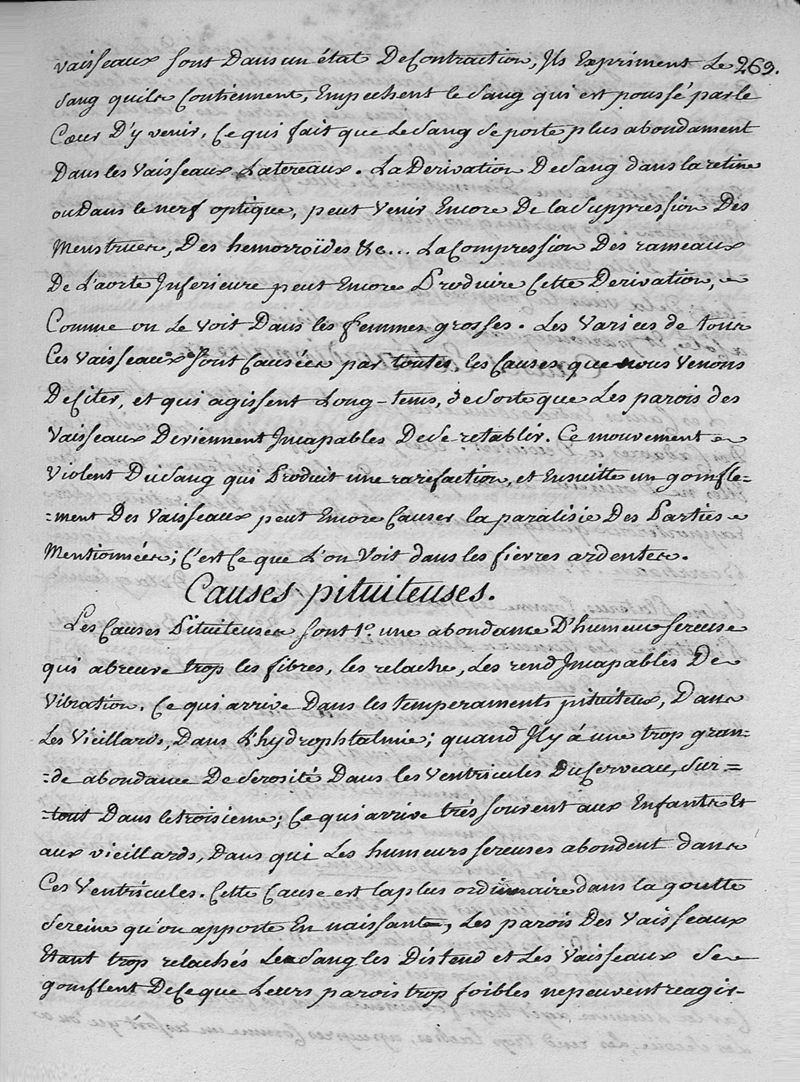 vaisseaux sont Dans un état De Contraction, Ils Expriment Le 269.
Sang quils Contiennent, Empechent le Sang qui est poussé par le
Cœur D'y venir, Ce qui fait que Le Sang Se porte plus abondament
Dans les Vaisseaux Latereaux. La Derivation De Sang dans la retine
ou Dans le nerf optique, peut Venir Encore De la Suppression Des
Menstrues, Des hemorroïdes &c... La Compression Des rameaux
De L'aorte Inferieure peut Encore Produire Cette Derivation,
Comme on Le Voit Dans les femmes grosses. Les Varices de tous
Ces Vaisseaux Sont Causées par toutes les Causes que nous Venons
De Citer, et qui agissent Long-tems, de Sorte que Les parois des
Vaisseaux Deviennent Incapables De Se retablir. Ce mouvement
Violent Du Sang qui Produit une rarefaction, et Ensuitte un gomfle=
=ment Des Vaisseaux peut Encore Causer la paralisie Des Parties
Mentionnées; C'est Ce que L'on Voit dans les fievres ardentes.
Causes pituiteuses.
Les Causes Pituiteuses sont 1.º une abondance D'humeur Sereuse
qui abreuve trop les fibres, les relache, Les rend Incapables De
Vibration. Ce qui arrive Dans les temperaments pituiteux, Dans
Les Vieillards, Dans L'hydrophtalmie; quand Il y á une trop gran=
=de abondance De Serosité Dans les Ventricules Du Cerveau, Sur=
=tout Dans le troisieme; Ce qui arrive trés souvent aux Enfants Et
aux vieillards, Dans qui Les humeurs sereuses abondent dans
Ces Ventricules. Cette Cause est la plus ordinnaire dans la goutte
Sereine qu'on apporte En naissant, Les parois Des Vaisseaux
Etant trop relachés Le Sang les Distend et Les Vaisseaux Se
gomflent De Ce que Leurs parois trop foibles ne peuvent reagir